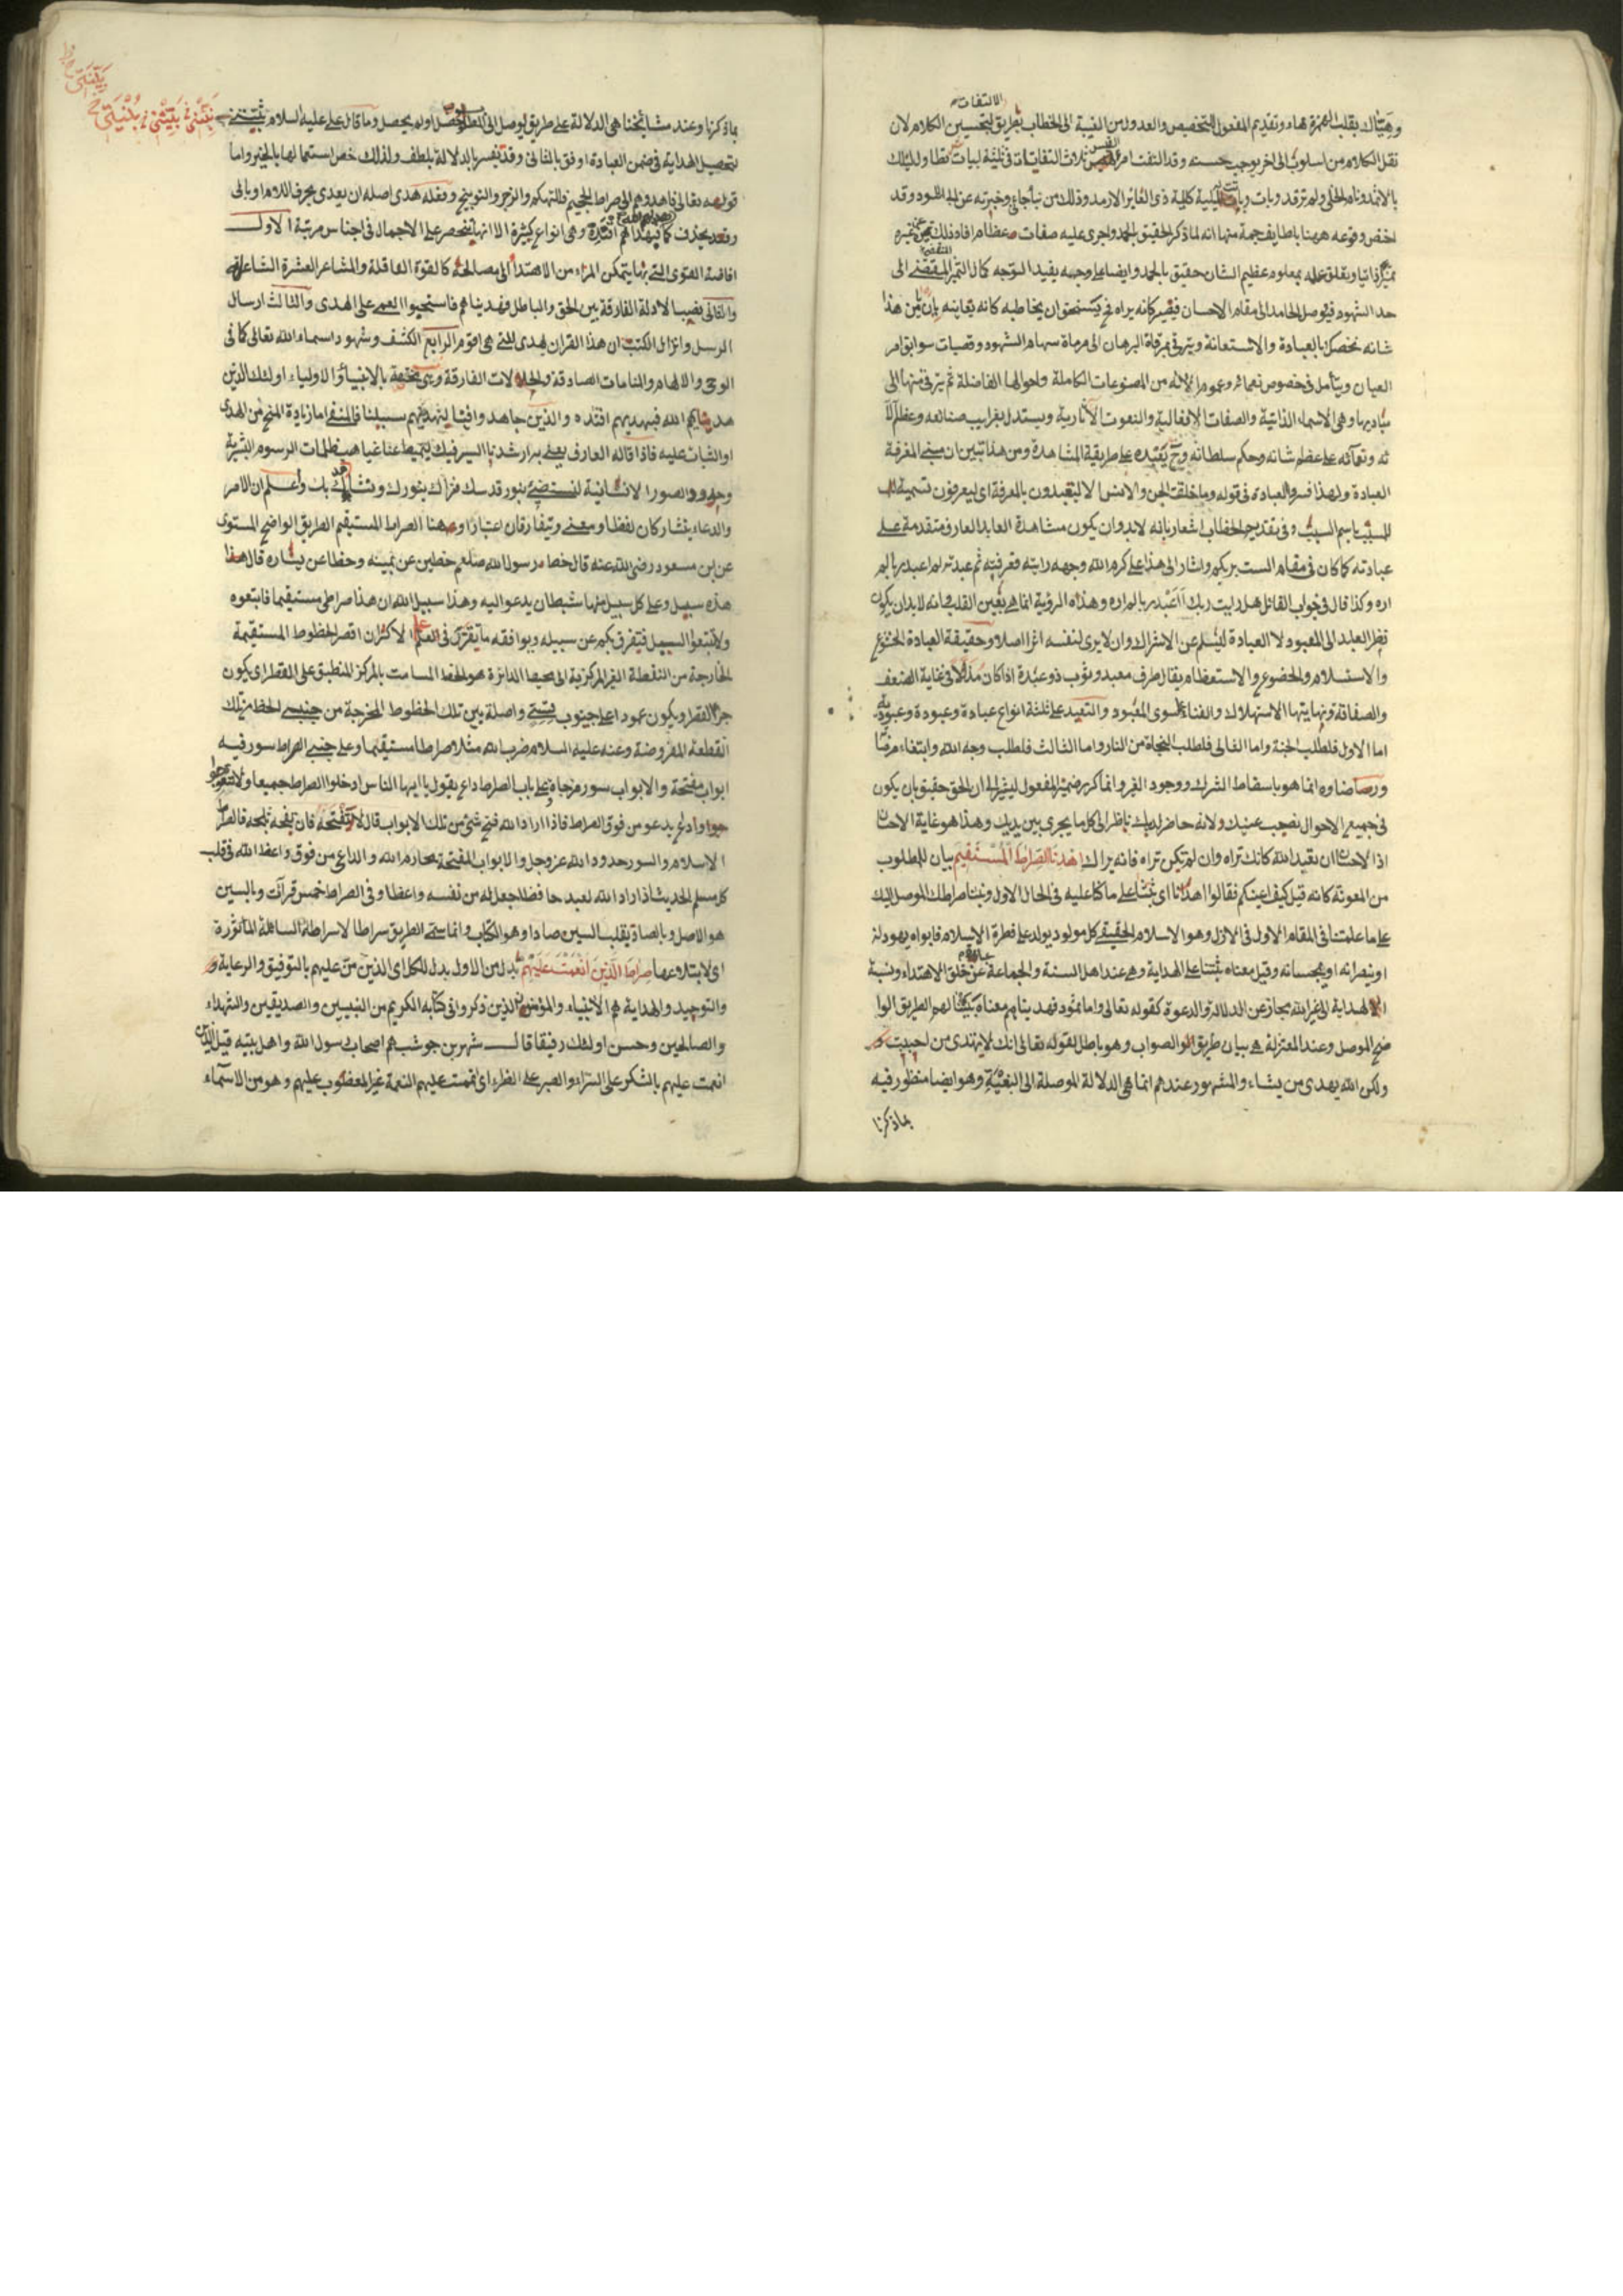 الالتفات
وهيّاك بقلب الهمزة هاء وتقديم المفعول للتخصيص والعدول من الغيبة الى الخطاب بطريق لتحسين الكلام لان
نقل الكلام من اسلوب الى اخر يوجب حسنه وقد التفت امرء القيس ثلاث التفاتات في ثلثة ابيات تطاول ليلك
بالاثمد ونام الخلي ولم ترقد وبات وباتت له ليلة كليلة ذي العائر الارمد وذلك من نبأ جاءني وخبرته عن ابي الاسود وقد
اختص وقوعه ههنا بلطايف جمة منها انه لما ذكر الحقيق بالحمد واجرى عليه صفات عظام افاد ذلك تميزه عن غيره
تميزا ذاتيا وتعلق علمه بمعلوم عظيم الشان حقيق بالحمد وايضا على وجه يفيد التوجه كمال التميز المقتضى الى
حد الشهود فيوصل الحامد الى مقام الاحسان فيصير كانه يراه فح يستحق ان يخاطبه كانه يعاينه بان يا من هذا
شانه نخصك بالعبادة والاستعانة ويترقى مرقاة البرهان الى مرماة سهام الشهود وقصبات سوابق امر
العيان ويتأمل في خصوص نعمائه وعموم الائه من المصنوعات الكاملة واحوالها الفاضلة ثم يترقى منها الى
مباديها وهي الاسماء الذاتية والصفات الافعالية والنعوت الاثارية ويستدل بغرايب صنائعه وعظم آلا
ئه ونعمائه على عظم شانه وحكم سلطانه وح يعبده على طريقة المشاهدة ومن هذا تبين ان مبنى المعرفة
العبادة ولهذا فسر والعبادة في قوله وما خلقت الجن والانس الا ليعبدون بالمعرفة اي ليعرفون تسمية
للمسبب باسم السبب وفي تقديم الخطاب اشعار بانه لابد وان يكون مشاهدة العابد العارف متقدمة على
عبادته كما كان في مقام الست بربكم واشار الى هذا على كرم الله وجهه رايته فعرفته ثم عبدته لم اعبد ربا لم
اره وكذا قال في جواب القائل هل رايت ربك أاعبد ربا لم اره وهذه الرؤية انما هي بعين القلب وانه لابد ان يكون
نظر العابد الى المعبود لا العبادة ليسلم عن الاشراك وان لا يرى لنفسه اثرا اصلا وحقيقة العبادة الخشوع
والاستسلام والخضوع والاستعظام يقال طرف معبد وثوب ذو عبدة اذا كان مذللا في غاية الضعف
والصفاقة ونهايتها الاستهلاك والفناء لسوى المعبود والتعبد على ثلثة انواع عبادة وعبودة وعبودية
اما الاول فلطلب الجنة واما الثانى فلطلب النجاة من النار واما الثالث فلطلب وجه الله وابتغاء مرضا
ورضاه انما هو باسقاط الشرك ووجود الغير وانما كرر ضمير المفعول ليشير الى ان الحق حقيق بان يكون
في جميع الاحوال نصب عينيك ولانه حاضر لديك ناظر الى كل ما يجرى بين يديك وهذا هو غاية الاحسان
اذ الاحسان ان تعبد الله كانك تراه وان لم تكن تراه فانه يراك اهدنا الصراط المستقيم بيان للمطلوب
من المعونة كانه قيل كيف اعينكم فقالوا اهدنا اي ثبتنا على ما كنا عليه في الحال الاول وثبتنا صراطك الموصل اليك
على ما علمتنا في المقام الاول في الازل وهو الاسلام الحقيقي كل مولود يولد على فطرة الاسلام فابواه يهودانه
او ينصرانه او يمجسانه وقيل معناه ثبتنا على الهداية وهي عند اهل السنة والجماعة عن خلق الاهتداء ونسبة
الهداية الى غير الله مجاز عن الدلالة والدعوة كقوله تعالى واما ثمود فهديناهم معناه بيّنا لهم الطريق الوا
ضح الموصل وعند المعتزلة هي بيان طريق الصواب وهو باطل لقوله تعالى انك لا تهتدى من احببت
ولكن الله يهدى من يشاء والمشهور عندهم انما هي الدلالة الموصلة الى البغية وهو ايضا منظور فيه
بما ذكرنا
بما ذكرنا وعند مشائخنا هي الدلالة على طريق يوصل الى المطلوب حصل او لم يحصل وما قال على عليه السلام ثبتنى
بتحصيل الهداية في ضمن العبادة اوفق بالثانى وقد يفسر بالدلالة بلطف ولذلك خص استعمالها بالخير واما
قوله تعالى فاهدوهم الى صراط الجحيم فللتهكم والزجر والتوبيخ وفعله هدى اصله ان يعدى بحرف اللام او بالى
وقد يحذف كما فبهداهم اقتده وهي انواع كثيرة الا انها تنحصر على الاجمال في اجناس مرتبة الاول
افاضة القوى التي بها يتمكن المرء من الاهتداء الى مصالحه كالقوة العاقلة والمشاعر العشرة الشاعرة
والثانى نصب الادلة الفارقة بين الحق والباطل وفهديناهم فاستحبوا العمى على الهدى والثالث ارسال
الرسل وانزال الكتب ان هذا القران يهدى للتي هي اقوم الرابع الكشف وشهود اسماء الله تعالى كما في
الوحى والالهام والمنامات الصادقة والحالات الفارقة وهي مختصة بالانبياء والاولياء اولئك الذين
هديهم الله فبهديهم اقتده والذين جاهدوا فينا لنهدينهم سبلنا فالمنفى اما زيادة المنح من الهدى
او الثبات عليه فاذا قاله العارف يعنى به ارشدنا السير فيك لتميط عنا غياهب ظلمات الرسوم البشرية
وحدود الصور الانسانية لنستضئ بنور قدسك فنراك بنورك ونشاهدك بك واعلم ان الامر
والدعاء يتشاركان لفظا ومعنى ويتفارقان اعتبارا وههنا الصراط المستقيم الطريق الواضح المستوى
عن ابن مسعود رضى الله عنه قال خط رسول الله صلعم خطين عن يمينه وخطا عن يساره قال هذا
هذه سبيل وعلى كل سبيل منها شيطان يدعو اليه وهذا سبيل الله ان هذا صراطى مستقيما فاتبعوه
ولا تتبعوا السبيل فتفرق بكم عن سبيله ويوافقه ما تقرر في العلم الاكثر ان اقصر الخطوط المستقيمة
الخارجة من النقطة الغير المركزية الى محيط الدائرة هو الخط المسامت بالمركز المنطبق على القطر اي يكون
جزأ القطر ويكون عمودا على جنوب واصلة بين تلك الخطوط المخرجة من جنبى الخط من تلك
القطعة المفروضة وعنه عليه السلام ضرب الله مثلا صراطا مستقيما وعلى جنبى الصراط سور فيه
ابواب مفتحة والابواب سور مرخاة وعلى باب الصراط داع يقول يا ايها الناس ادخلوا الصراط جميعا ولا تتعوجوا
وداع يدعو من فوق الصراط فاذا اراد الله فتح شئ من تلك الابواب قال لا تفتحه فان تفتحه تلجه فالصراط
الاسلام والسور حدود الله عز وجل والابواب المفتحة محارم الله والداعى من فوق واعظ الله في قلب
كل مسلم الحديث اذا اراد الله لعبد حافظا جعل له من نفسه واعظا وفي الصراط خمس قرآت وبالسين
هو الاصل وبالصاد بقلب السين صادا وهو الكتاب وانما سمى الطريق سراطا لاسراطة السائلة المأثورة
اي لابتلاعها صراط الذين انعمت عليهم بدل من الاول بدل الكل اي الذين من عليهم بالتوفيق والرعاية
والتوحيد والهداية هم الانبياء والمؤمن الذين ذكروا في كتابه الكريم من النبيين والصديقين والشهداء
والصالحين وحسن اولئك رفيقا قال شهر بن حوشب هم اصحاب رسول الله واهل بيته قيل الذين
انعمت عليهم بالشكر على السراء والصبر على الضراء اي اتممت عليهم النعمة غير المغضوب عليهم وهو من الاسماء